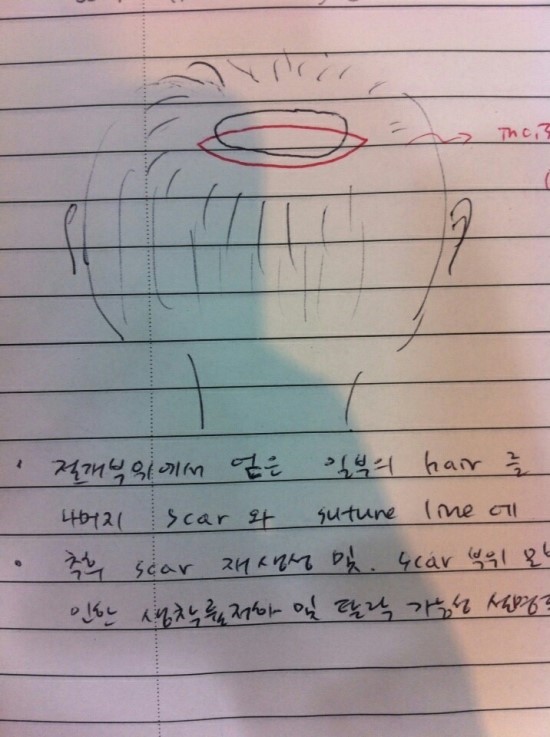 inc.
절개부위에서 얻은 일부의 hair 를
나머지 scar 와 suture line 에
추후 scar 재생성 및. scar 부위
인한 생착률저하 및 탈락 가능성 설명